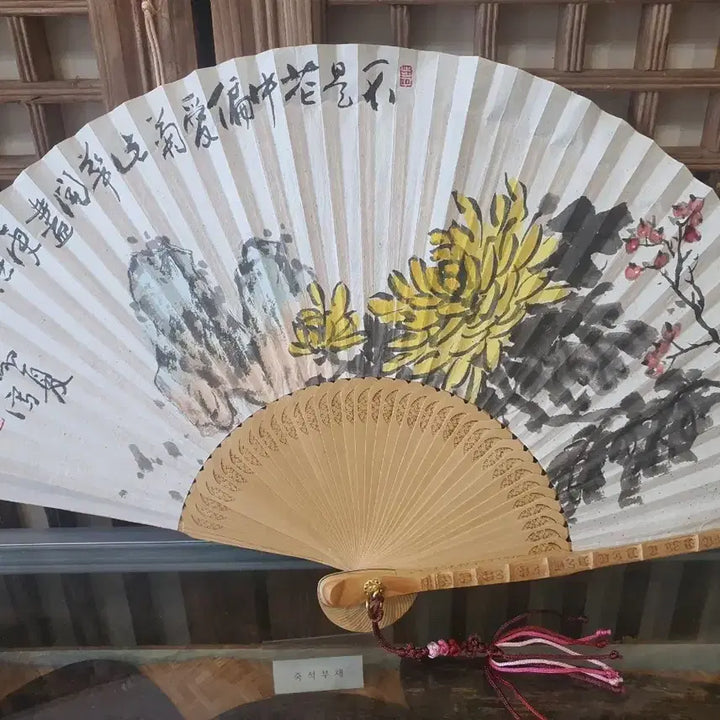 不是花中偏愛菊此華開盡更
죽석부채